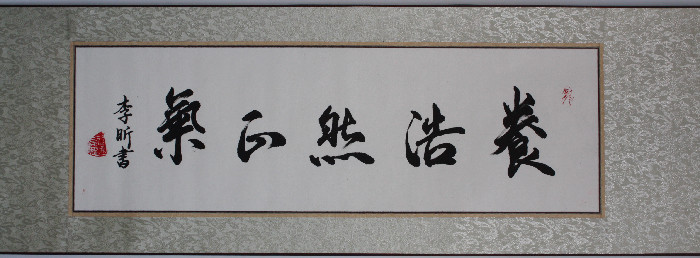 養浩然正氣
李昕書